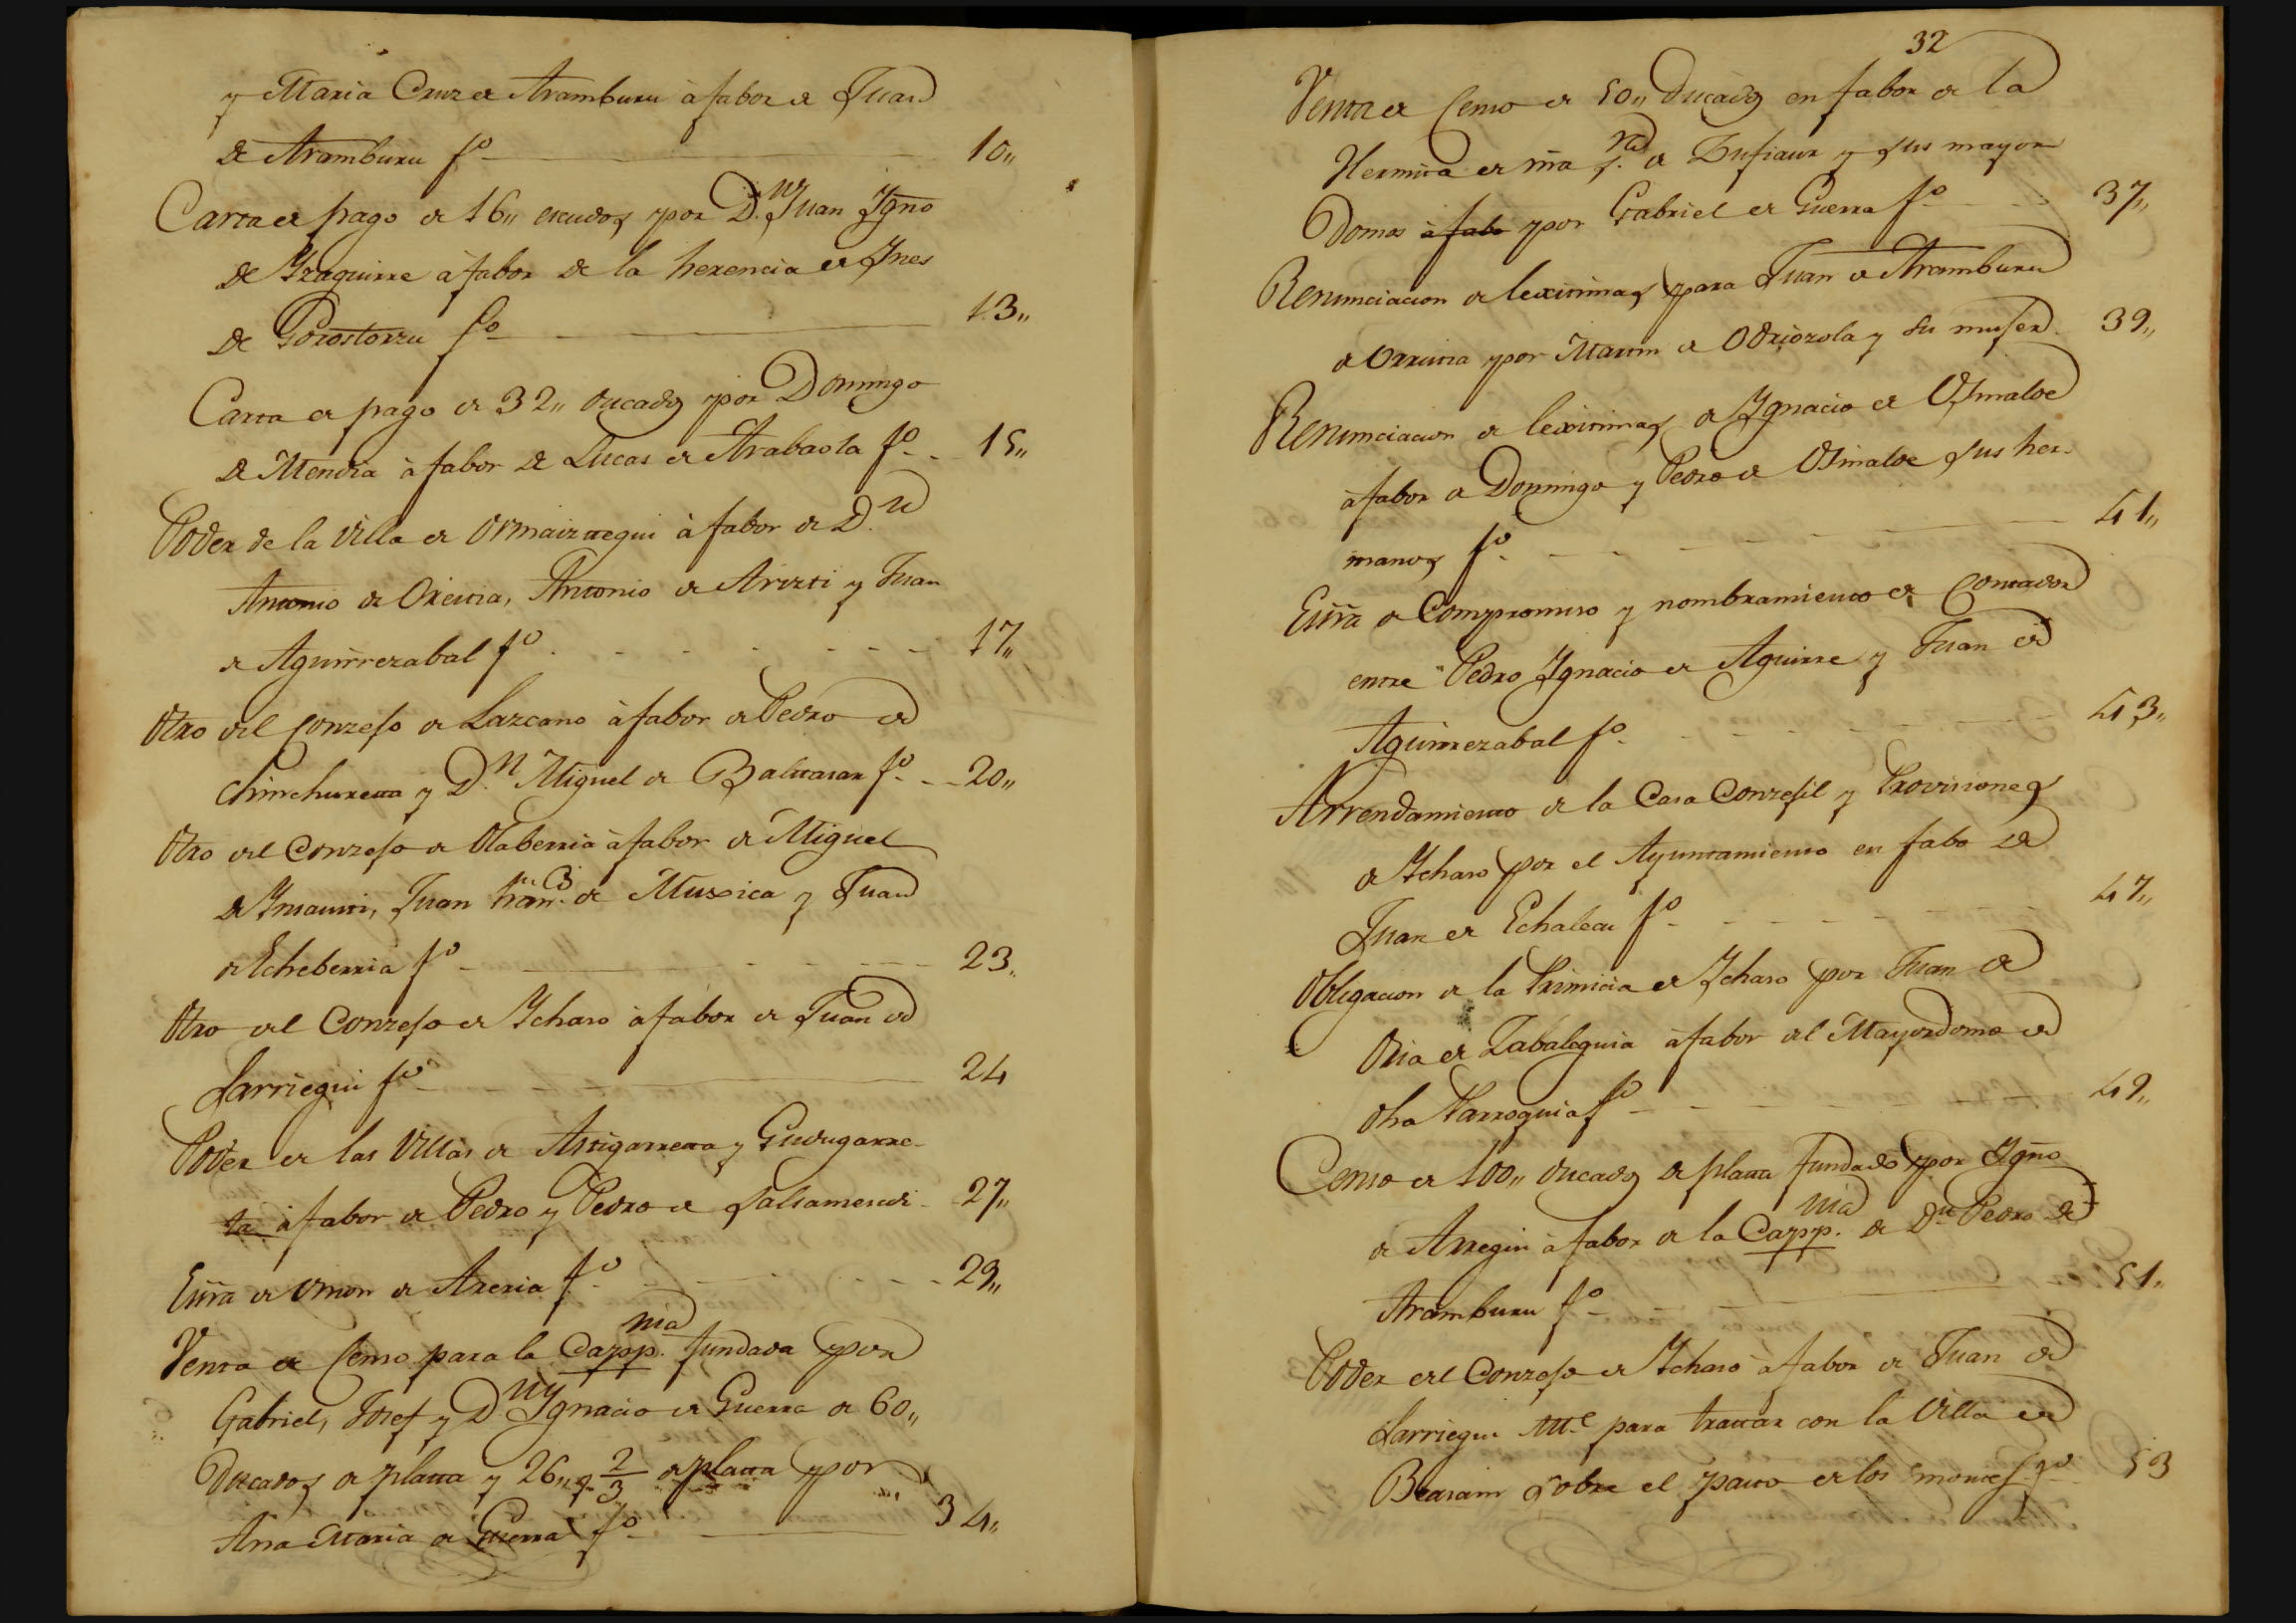 y Maria Cruz de Aramburu à fabor de Juan
de Aramburu fº 10,,
Carta de pago de 16,, escudos por D.n Juan Ygño
de Yzaguirre à fabor de la herencia de Ynes
de Gorostorzu fº 13,,
Carta de pago de 32,, ducados por Domingo
de Mendia à fabor de Lucas de Arabaola fº 15,,
Poder de la Villa de Ormaiztegui à fabor de D.n
Antonio de Oreitia, Antonio de Arizti y Juan
de Aguirrezabal fº 17,,
Otro del Conzejo de Lazcano à fabor de Pedro de
Chinchurreta y D.n Miguel de Baltasar fº 20,,
Otro del Conzejo de Olaberria à fabor de Miguel
de Ynsausti, Juan fran.co de Muxica y Juan
de Echeberria fº 23,
Otro del Conzejo de Ychaso à fabor de Juan de
Larriegui fº 24
Poder de las Villas de Astigarreta y Gudugarre-
ta à fabor de Pedro y Pedro de Salsamendi 27,,
Essra de Union de Areria fº 29,,
Venta de Censo para la Capp.nia fundada por
Gabriel, Josef y D.n Ygnacio de Guerra de 60,,
Ducados de platta y 26,, y 2/3 de platta por
Ana Maria de Guerra fº 34,,
32
Venta de Censo de 50,, Ducados en fabor de la
Hermita de nña S.ra de Zufiaur y sus mayor
Domos à fabo por Gabriel de Guerra fº 37,,
Renunciacion de lexitimas para Juan de Aramburu
de Urrutia por Martin de Odriozola y su mujer 39,,
Renunciacion de lexitimas de Ygnacio de Usinalde
à fabor de Domingo y Pedro de Usinalde sus her-
manos fº 41,,
Essra de Compromiso y nombramiento de Contador
entre Pedro Ygnacio de Aguirre y Juan de
Aguirrezabal fº 43,,
Arrendamiento de la Casa Conzejil y Provisiones
de Ychaso por el Ayuntamiento en fabo de
Juan de Echalecu fº 47,,
Obligacion de la Primicia de Ychaso por Juan de
Oria de Zabaleguia à fabor del Mayordomo de
dha Parroquia fº 49,,
Censo de 100,, ducados de platta fundado por Ygño
de Arregui à fabor de la Capp.nia de D.n Pedro de
Aramburu fº 51,,
Poder del Conzejo de Ychaso à fabor de Juan de
Larriegui Mê para trattar con la Villa de
Beasain sobre el pasto de los montes fº 53